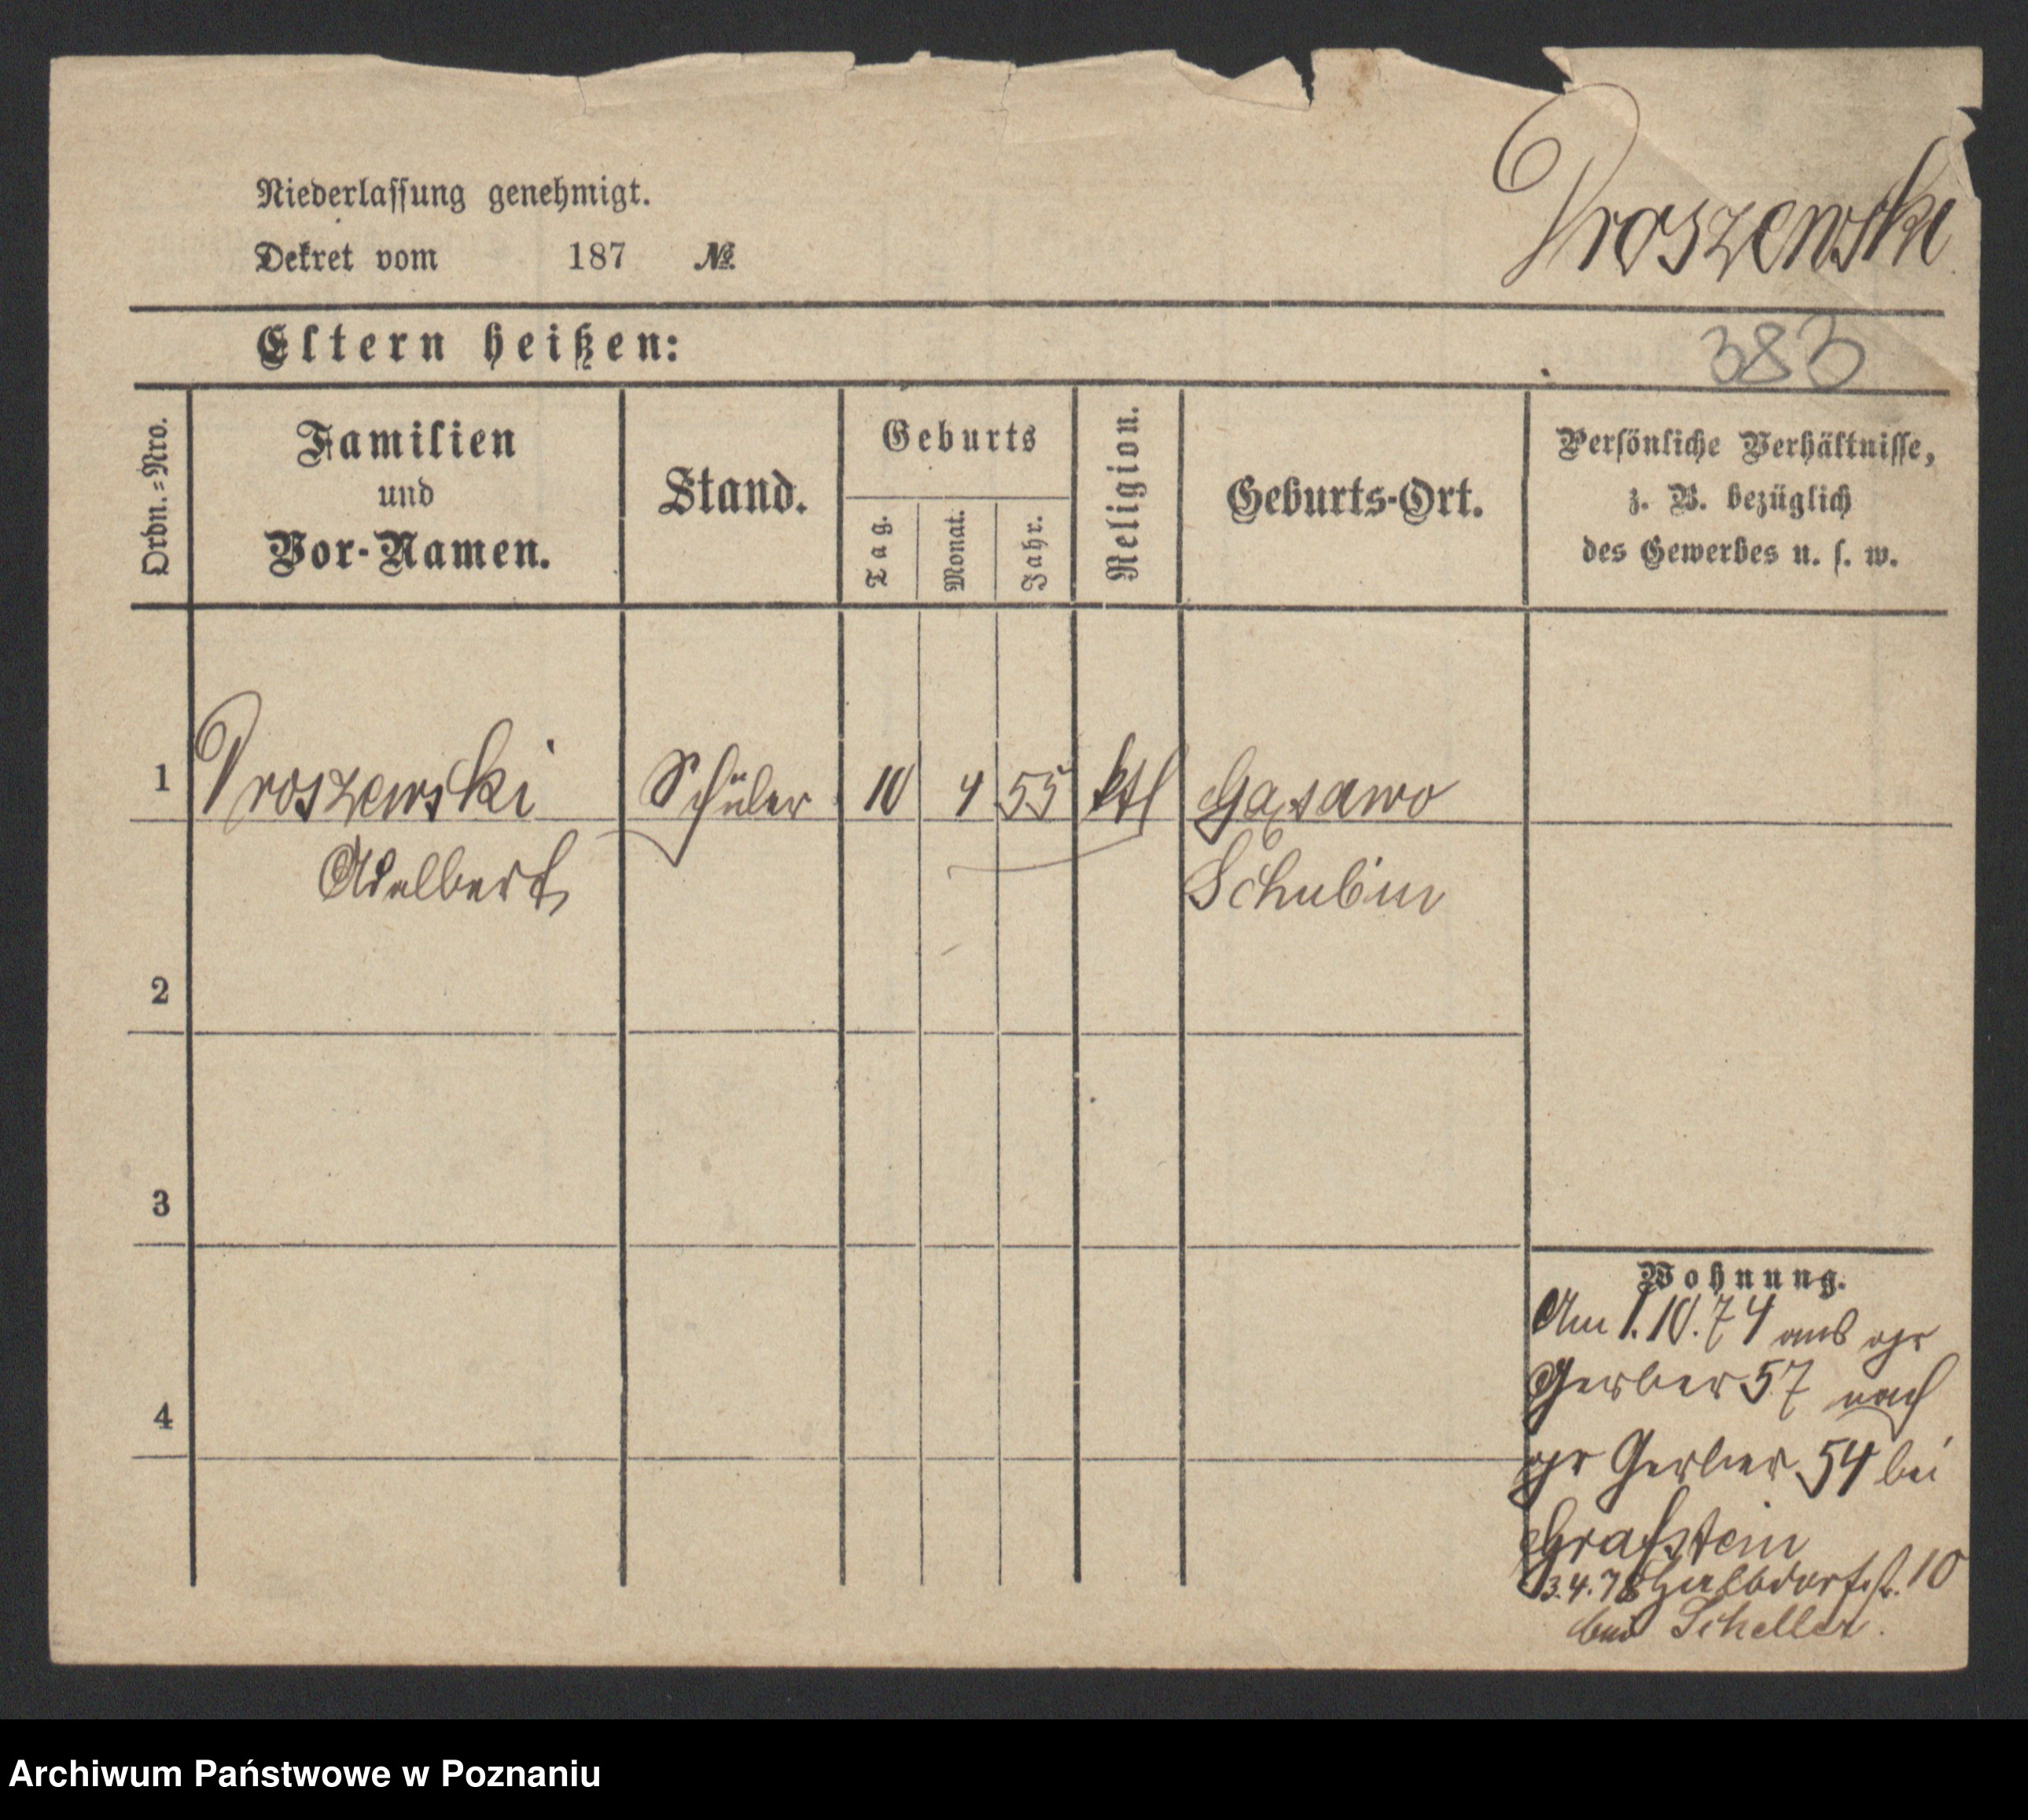 Niederlassung genehmigt.
Dekret vom 187 №
Proszewski
Eltern heißen:
383
Ordn.=Nro.
Familien
und
Vor-Namen.
Stand.
Geburts
Tag.
Monat.
Jahr.
Religion.
Geburts-Ort.
Persönliche Verhältnisse,
z. B. bezüglich
des Gewerbes u. s. w.
1 Proszewski Schüler 10 4 55 ktl Gąsawo
Adelbert Schubin
2
3
4
Wohnung.
Am 1.10.74 aus gr
Gerber 57 nach
gr Gerber 54 bei
Grafstein
3.4.78 Halbdorfst. 10
bei Scheller.
Archiwum Państwowe w Poznaniu